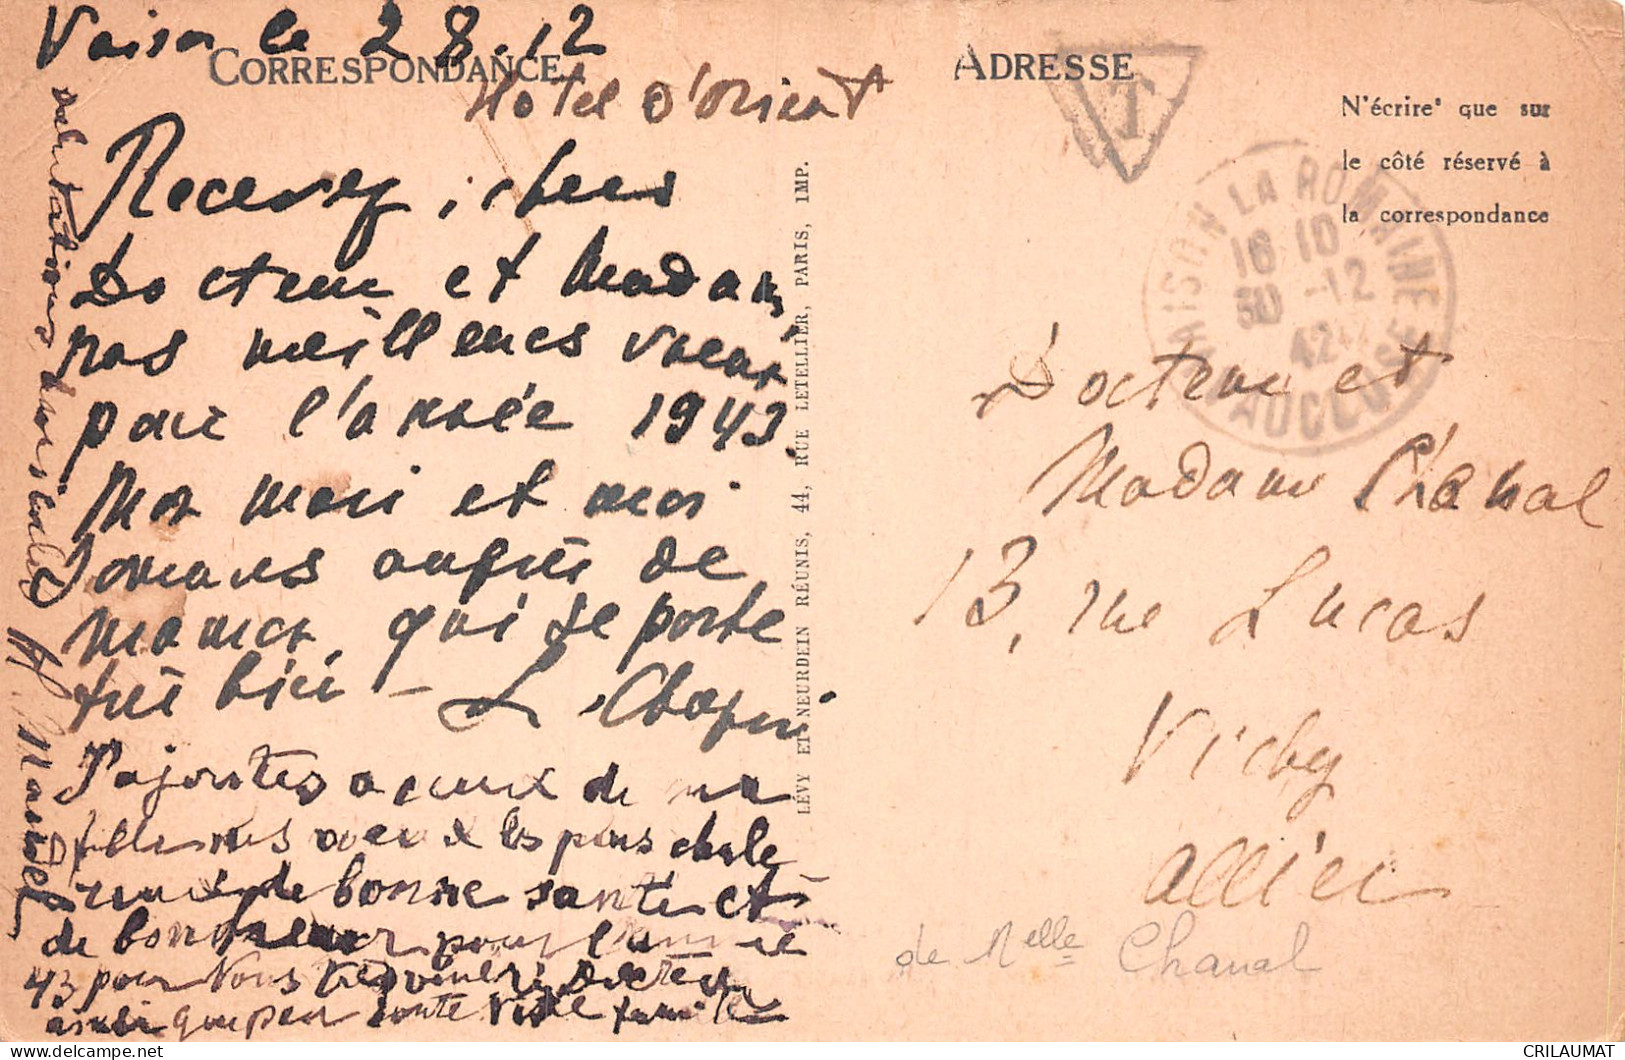 Vaison le 28.12
CORRESPONDANCE
Hotel d'Orient
Recevez, chers
Docteur et Madame,
nos meilleurs vœux
pour l'année 1943.
Mon mari et moi
sommes auprès de
maman qui se porte
très bien - L. Chapuis
J'ajoute à ceux de ma
fille mes vœux les plus chale
reux de bonne santé et
de bonheur pour l'année
43 pour vous très vénéré Docteur
ainsi que pour toute votre famille
salutations
LÉVY ET NEURDEIN RÉUNIS, 44, RUE LETELLIER, PARIS, IMP.
ADRESSE
T
N'écrire que sur
le côté réservé à
la correspondance
VAISON LA ROMAINE
16 10
30 -12
42
VAUCLUSE
Docteur et
Madame Chanal
13, rue Lucas
Vichy
Allier
de Melle Chanal
CRILAUMAT